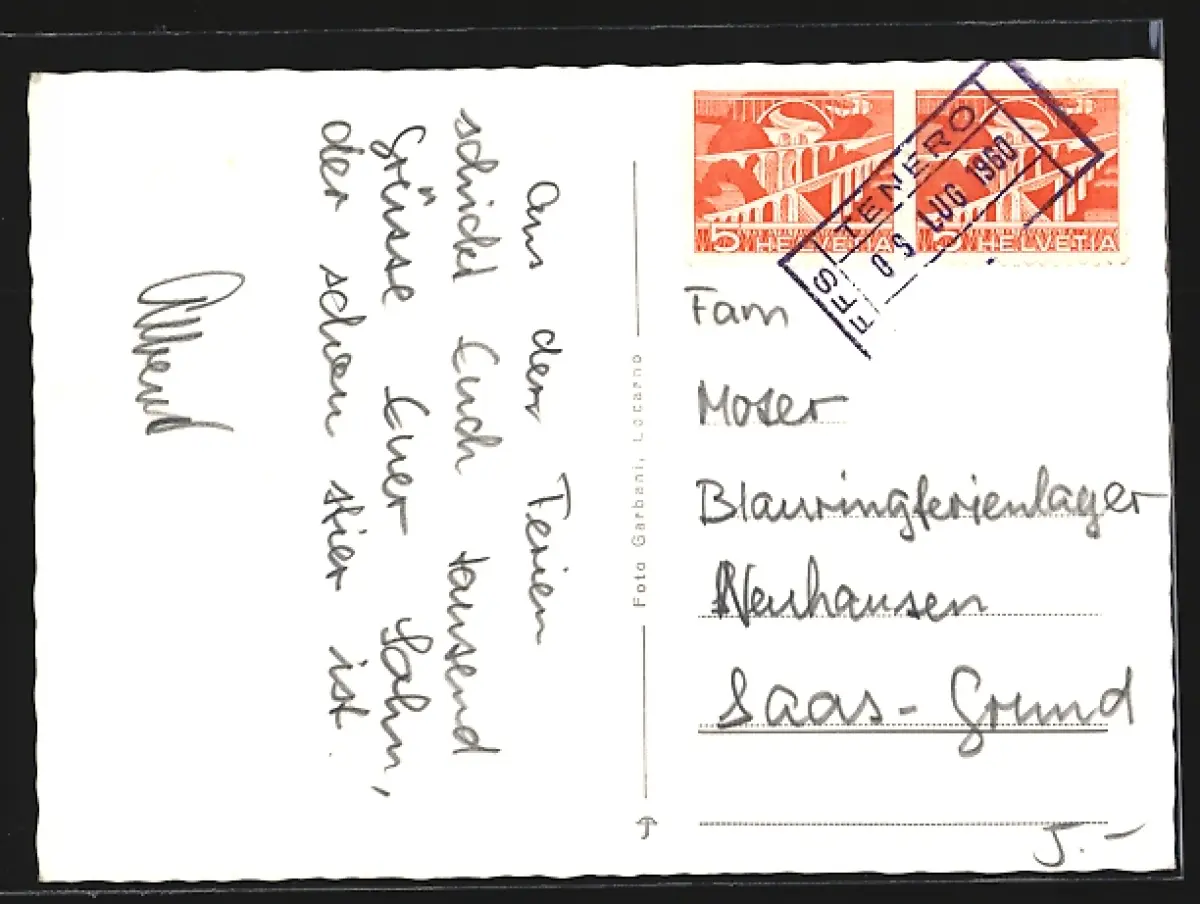 Aus den Ferien
schickt Euch tausend
Grüsse Euer Sohn,
der schon stier ist.
5 HELVETIA
5 HELVETIA
FFS TENERO
09 LUG 1960
Foto Garbani, Locarno
Fam
Moser
Blauringferienlager
Neuhausen
Saas-Grund
5.-